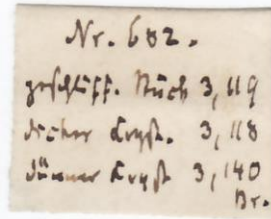 Nr. 682.
geschliff. Stück 3,119
dicker Kryst. 3,118
dünner Kryst 3,140
Br.